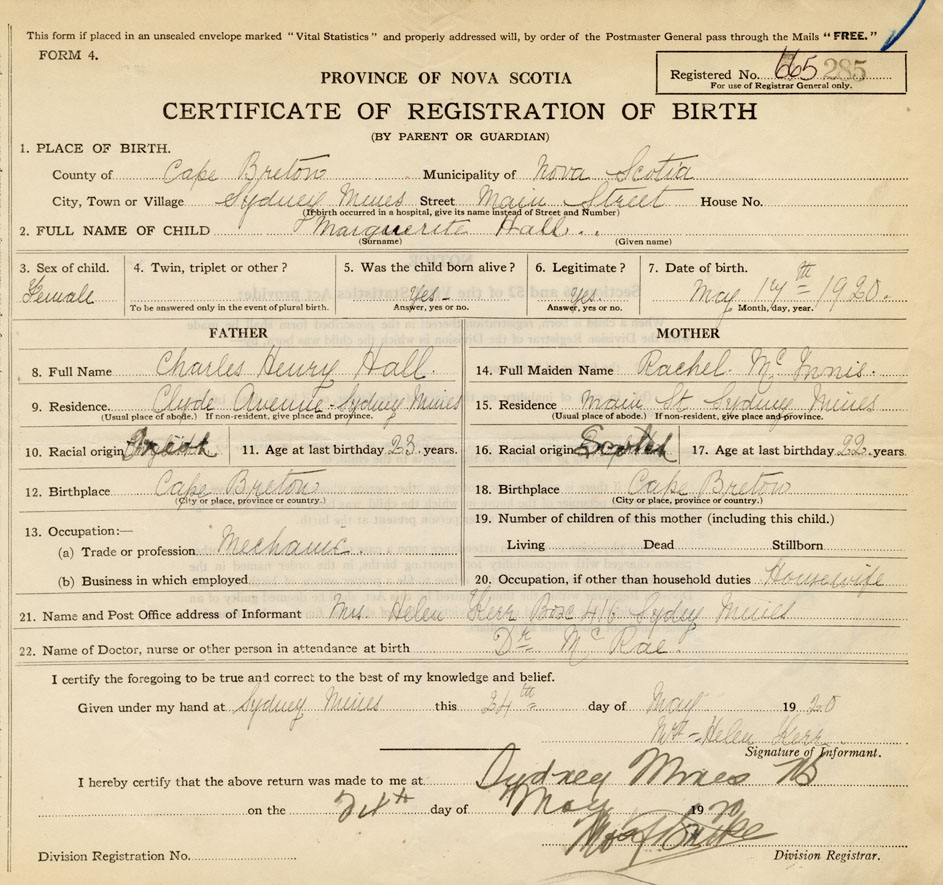 This form if placed in an unsealed envelope marked "Vital Statistics" and properly addressed will, by order of the Postmaster General pass through the Mails "FREE."
FORM 4.
Registered No. 665 285
For use of Registrar General only.
PROVINCE OF NOVA SCOTIA
CERTIFICATE OF REGISTRATION OF BIRTH
(BY PARENT OR GUARDIAN)
1. PLACE OF BIRTH.
County of Cape Breton Municipality of Nova Scotia
City, Town or Village Sydney Mines Street Main Street House No.
(If birth occurred in a hospital, give its name instead of Street and Number)
2. FULL NAME OF CHILD Marguerite Hall
(Surname) (Given name)
3. Sex of child. 4. Twin, triplet or other? 5. Was the child born alive? 6. Legitimate? 7. Date of birth.
Female Yes- Yes. May 17th 1920.
To be answered only in the event of plural birth. Answer, yes or no. Answer, yes or no. Month, day, year.
FATHER MOTHER
8. Full Name Charles Henry Hall. 14. Full Maiden Name Rachel McInnis.
9. Residence. Clyde Avenue-Sydney Mines 15. Residence Main St Sydney Mines
(Usual place of abode.) If non-resident, give place and province. (Usual place of abode.) If non-resident, give place and province.
10. Racial origin 11. Age at last birthday 23. years. 16. Racial origin Scotch 17. Age at last birthday 22. years
12. Birthplace Cape Breton 18. Birthplace Cape Breton
(City or place, province or country.) (City or place, province or country.)
13. Occupation:— 19. Number of children of this mother (including this child.)
(a) Trade or profession Mechanic. Living Dead Stillborn
(b) Business in which employed 20. Occupation, if other than household duties Housewife
21. Name and Post Office address of Informant Mrs Helen Kerr Box 416 Sydney Mines
22. Name of Doctor, nurse or other person in attendance at birth Dr McRae.
I certify the foregoing to be true and correct to the best of my knowledge and belief.
Given under my hand at Sydney Mines this 24th day of May 1920
Mrs-Helen Kerr
Signature of Informant.
I hereby certify that the above return was made to me at Sydney Mines
on the 24th day of May 1920
Division Registration No. Division Registrar.